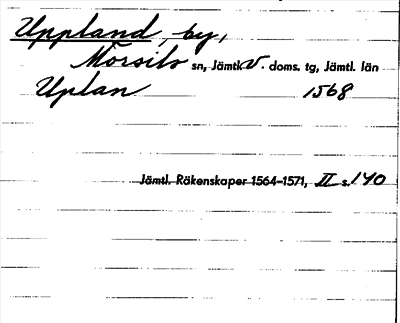 Uppland, by,
Mörsils sn, Jämtl. v. doms. tg, Jämtl. län
Uplan 1568
Jämtl. Räkenskaper 1564-1571, II s. 140